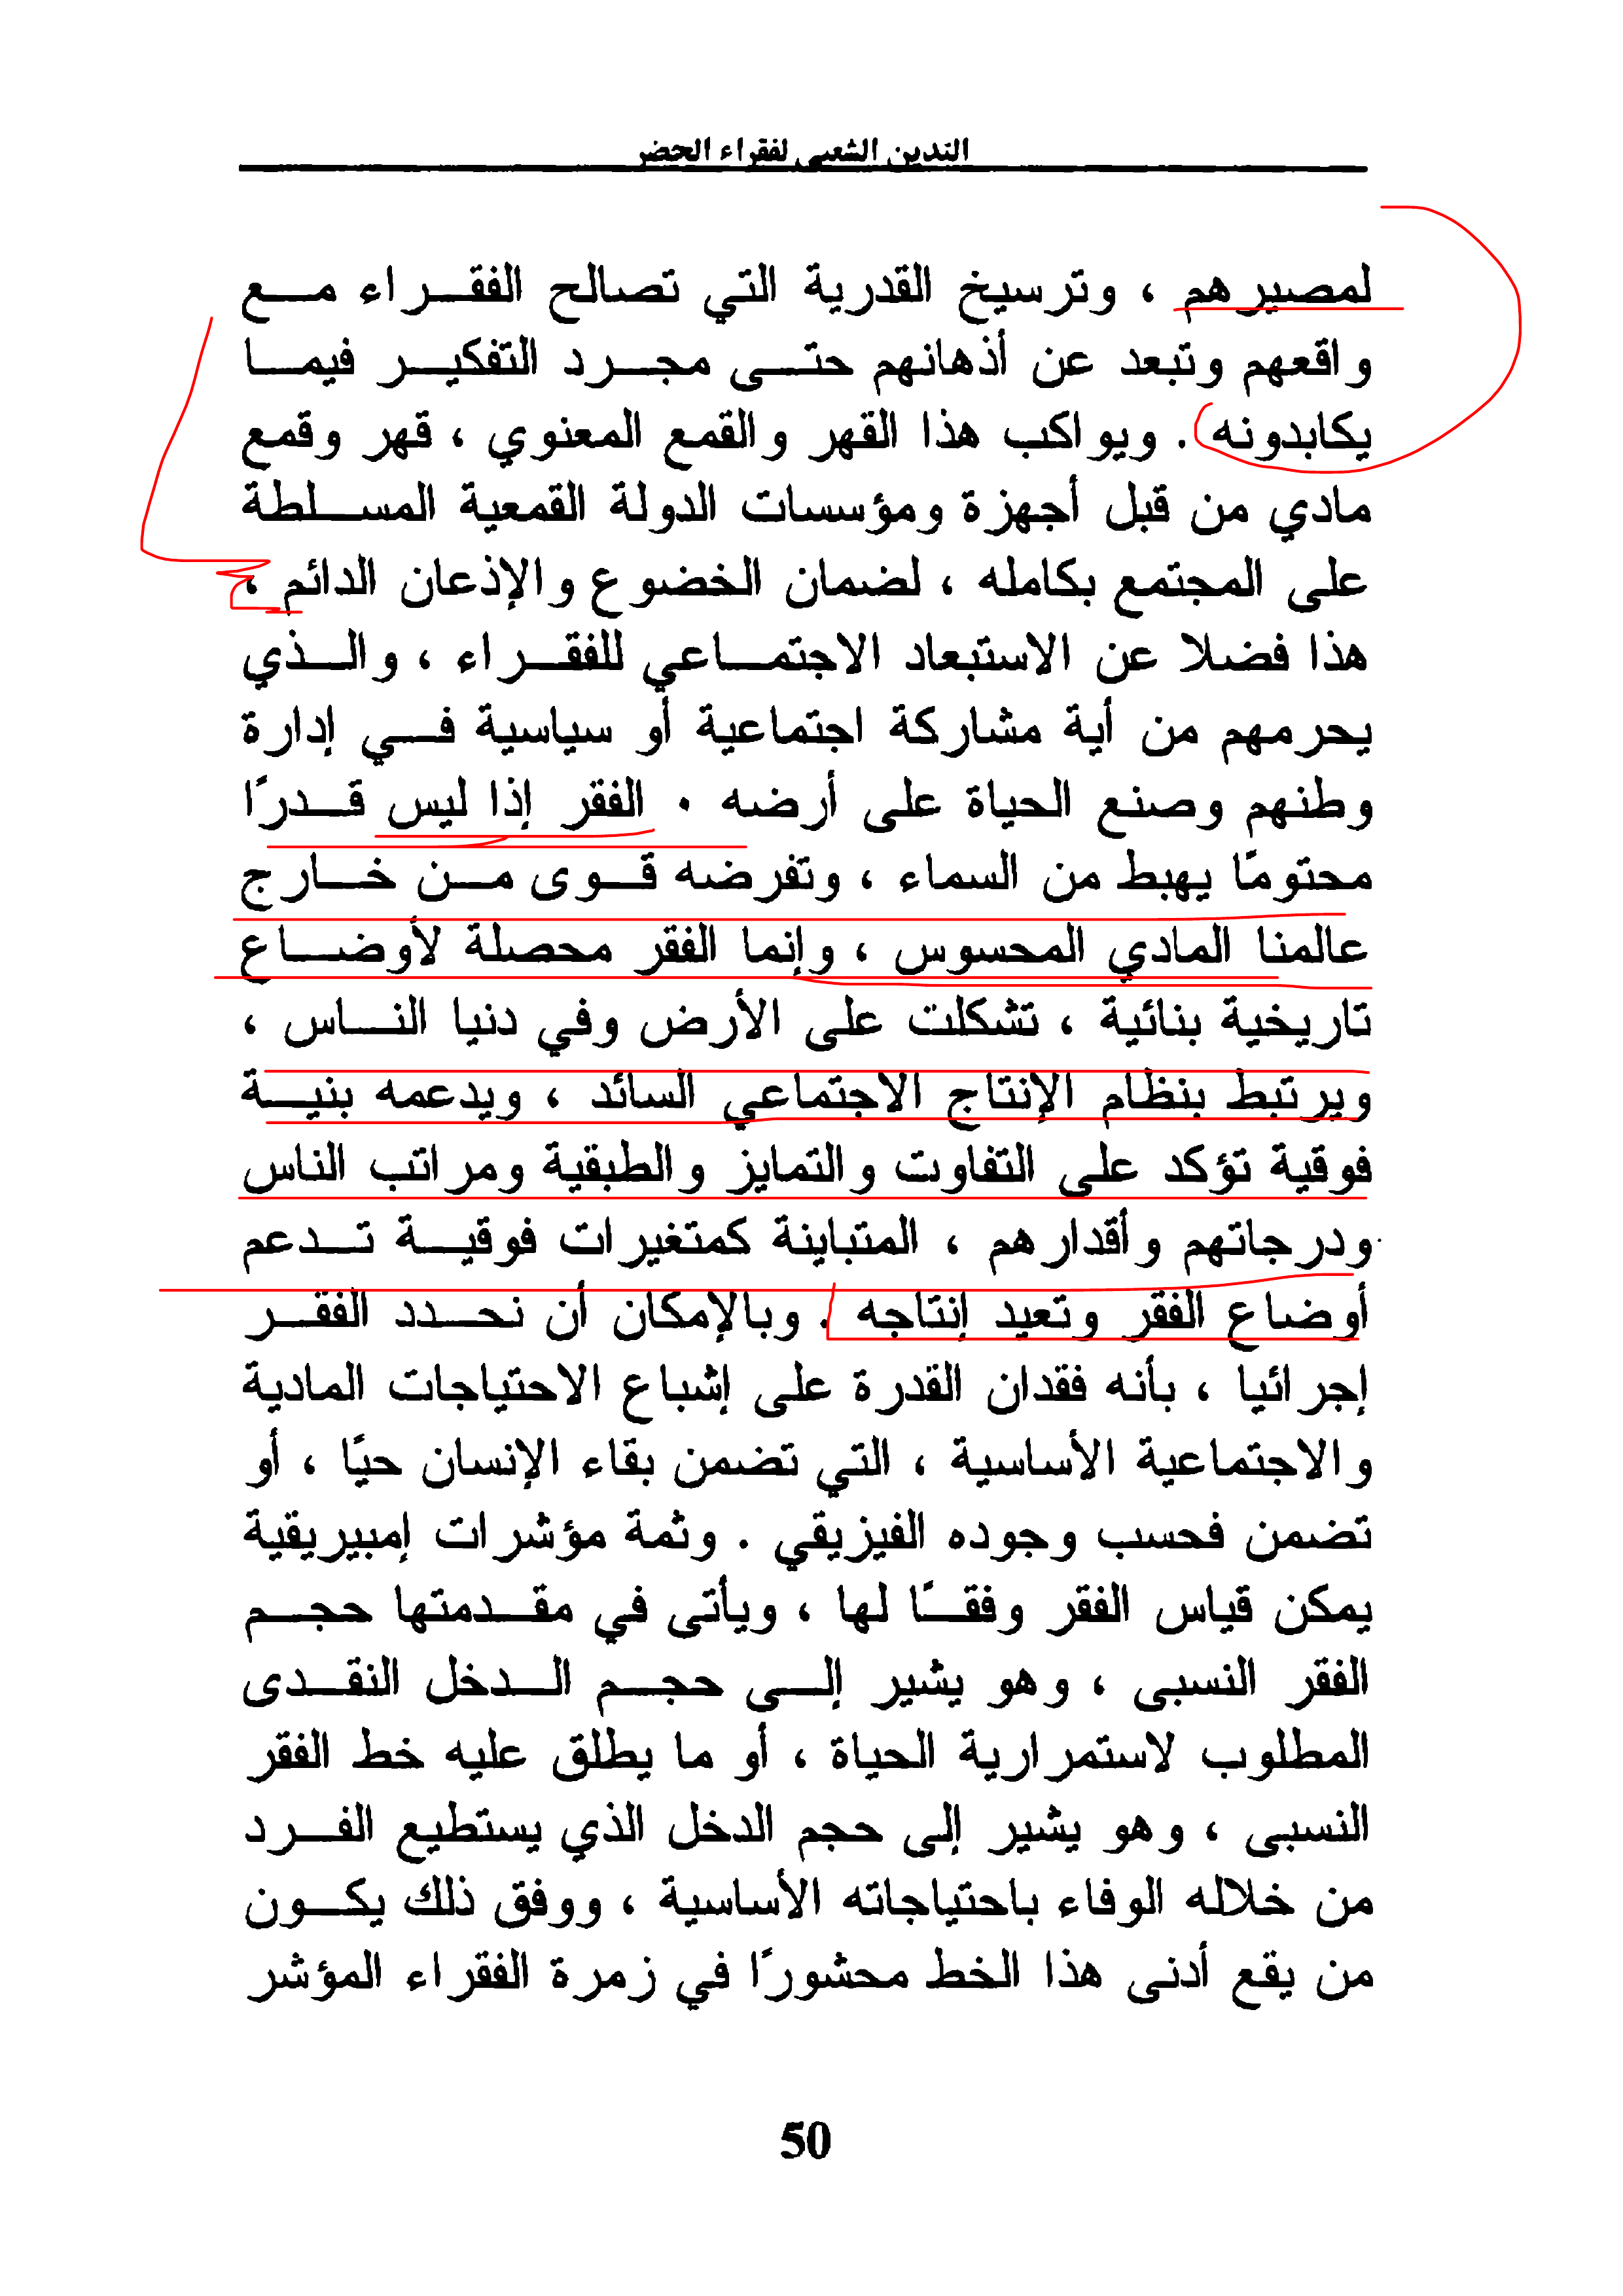 التدين الشعبي لفقراء الحضر
لمصيرهم ، وترسيخ القدرية التي تصالح الفقراء مع
واقعهم وتبعد عن أذهانهم حتى مجرد التفكير فيما
يكابدونه . ويواكب هذا القهر والقمع المعنوي ، قهر وقمع
مادي من قبل أجهزة ومؤسسات الدولة القمعية المسلطة
على المجتمع بكامله ، لضمان الخضوع والإذعان الدائم ،
هذا فضلا عن الاستبعاد الاجتماعي للفقراء ، والذي
يحرمهم من أية مشاركة اجتماعية أو سياسية في إدارة
وطنهم وصنع الحياة على أرضه . الفقر إذا ليس قدرًا
محتومًا يهبط من السماء ، وتفرضه قوى من خارج
عالمنا المادي المحسوس ، وإنما الفقر محصلة لأوضاع
تاريخية بنائية ، تشكلت على الأرض وفي دنيا الناس ،
ويرتبط بنظام الإنتاج الاجتماعي السائد ، ويدعمه بنية
فوقية تؤكد على التفاوت والتمايز والطبقية ومراتب الناس
ودرجاتهم وأقدارهم ، المتباينة كمتغيرات فوقية تدعم
أوضاع الفقر وتعيد إنتاجه . وبالإمكان أن نحدد الفقر
إجرائيا ، بأنه فقدان القدرة على إشباع الاحتياجات المادية
والاجتماعية الأساسية ، التي تضمن بقاء الإنسان حيًا ، أو
تضمن فحسب وجوده الفيزيقي . وثمة مؤشرات إمبيريقية
يمكن قياس الفقر وفقًا لها ، ويأتى في مقدمتها حجم
الفقر النسبى ، وهو يشير إلى حجم الدخل النقدى
المطلوب لاستمرارية الحياة ، أو ما يطلق عليه خط الفقر
النسبى ، وهو يشير إلى حجم الدخل الذي يستطيع الفرد
من خلاله الوفاء باحتياجاته الأساسية ، ووفق ذلك يكون
من يقع أدنى هذا الخط محشورًا في زمرة الفقراء المؤشر
50